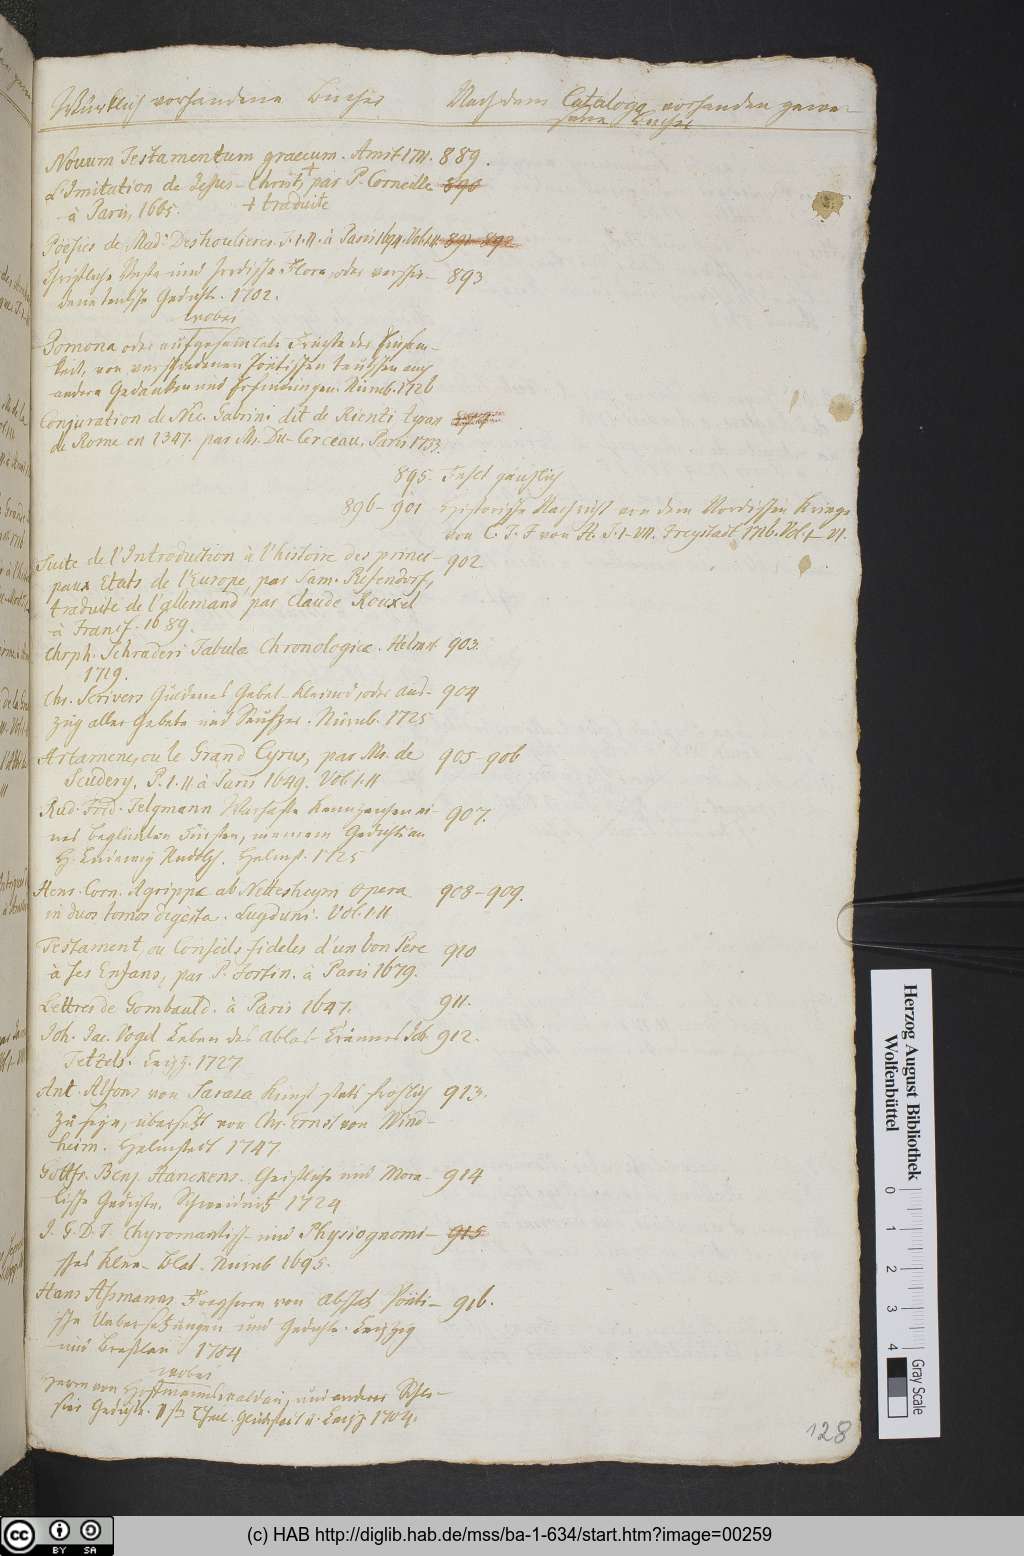 Würklich vorhandene Bücher
Nach dem Catalogo vorhanden gewe-
sene Bücher
Novum Testamentum graecum. Amst. 1711. 889.
L'Imitation de Jesus-Christ, + par P. Corneille 890
à Paris, 1665. + traduite
Poësies de Mad. Deshoulieres. T. I. II. à Paris 1694. Vol. I. II. 891-892
Christliche Vesta und Irrdische Flora, oder verschie- 893
dene teutsche Gedichte. 1702.
wobei
Pomona oder aufgesamlete Früchte der Einsam-
keit, von verschiedenen Poëtischen teutschen auch
andern Gedanken und Erfinnungen. Nürnb. 1726
Conjuration de Nic. Gabrini dit de Rienzi tyran 894
de Rome en 1347. par Mr. Du-Cerceau. Paris 1733.
895. Fehlt gäntzlich
896-901 Historische Nachricht von dem Nordischen Kriege
von C. J. F von H. T. I-VII. Freystadt 1716. Vol. I-VI.
Suite de l'Introduction à l'histoire des princi- 902
paux Etats de l'Europe, par Sam. Pufendorf,
traduite de l'allemand par Claude Rouxel
à Francf. 1689.
Chrph. Schraderi Tabulæ Chronologicæ. Helmst. 903.
1719.
Chr. Scrivers Güldenes Gebet-Kleinod, oder aus- 904
zug aller Gebete und Seufzer. Nürnb. 1725
Artamene, ou le Grand Cyrus, par Mr. de 905-906
Scudery. P. I. II à Paris 1649. Vol. I. II
Rud. Frid. Telgmann Warhafte Kennzeichen ei- 907.
nes beglückten Fürsten, in einem Gedicht an
H. Ludewig Rudolph. Helmst. 1725
Henr. Corn. Agrippæ ab Nettesheym opera 908-909.
in duos tomos digesta. Lugduni. Vol. I. II
Testament, ou Conseils fideles d'un bon Pere 910
à ses Enfans, par P. Fortin. à Paris 1679.
Lettres de Gombauld. à Paris 1647. 911.
Joh. Jac. Vogel Leben des ablas-Krämers Joh. 912.
Tetzels. Leipz. 1727
Ant. Alfons von Sarasa Kunst stets frölich 913.
zu seyn, übersetzt von Chr. Ernst von Wind-
heim. Helmstadt 1747
Gottfr. Benj. Hanckens. Geistliche und Mora- 914
lische Gedichte. Schweidnitz 1724
I. G. D. T. Chyromantisch- und Physiognomi- 915
sches Klee-Blat. Nürnb 1695.
Hans Aßmanns Freyherrn von Abschatz Poëti- 916.
sche Uebersetzungen und Gedichte. Leipzig
und Breßlau 1704
wobei
Herrn von Hoffmannswaldau, und andrer Schle-
sier Gedichte. 1ster Theil. Glückstadt u. Leipz 1704.
128
Herzog August Bibliothek
Wolfenbüttel
0 1 2 3 4
Gray Scale
cc BY SA
(c) HAB http://diglib.hab.de/mss/ba-1-634/start.htm?image=00259